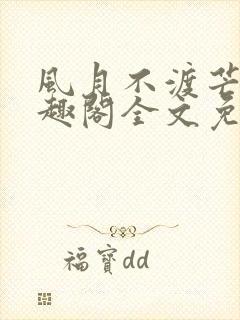 風月不渡芒
趣閣全文免
福寶dd